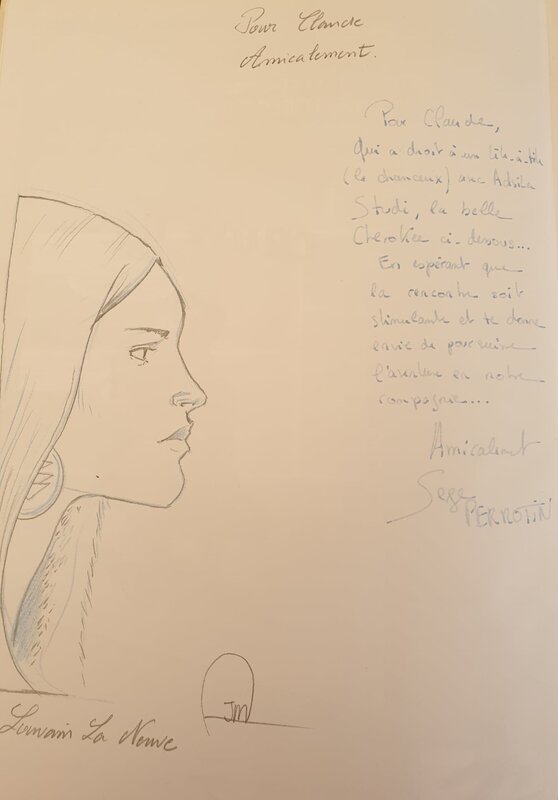 Pour Claude
Amicalement.
Pour Claude,
qui a droit à un tête-à-tête
(le chanceux) avec Adsila
Studi, la belle
Cherokee ci-dessous...
En espérant que
la rencontre soit
stimulante et te donne
envie de poursuivre
l'aventure en notre
compagnie...
Amicalement
Serge
PERROTIN
JM
Louvain La Neuve